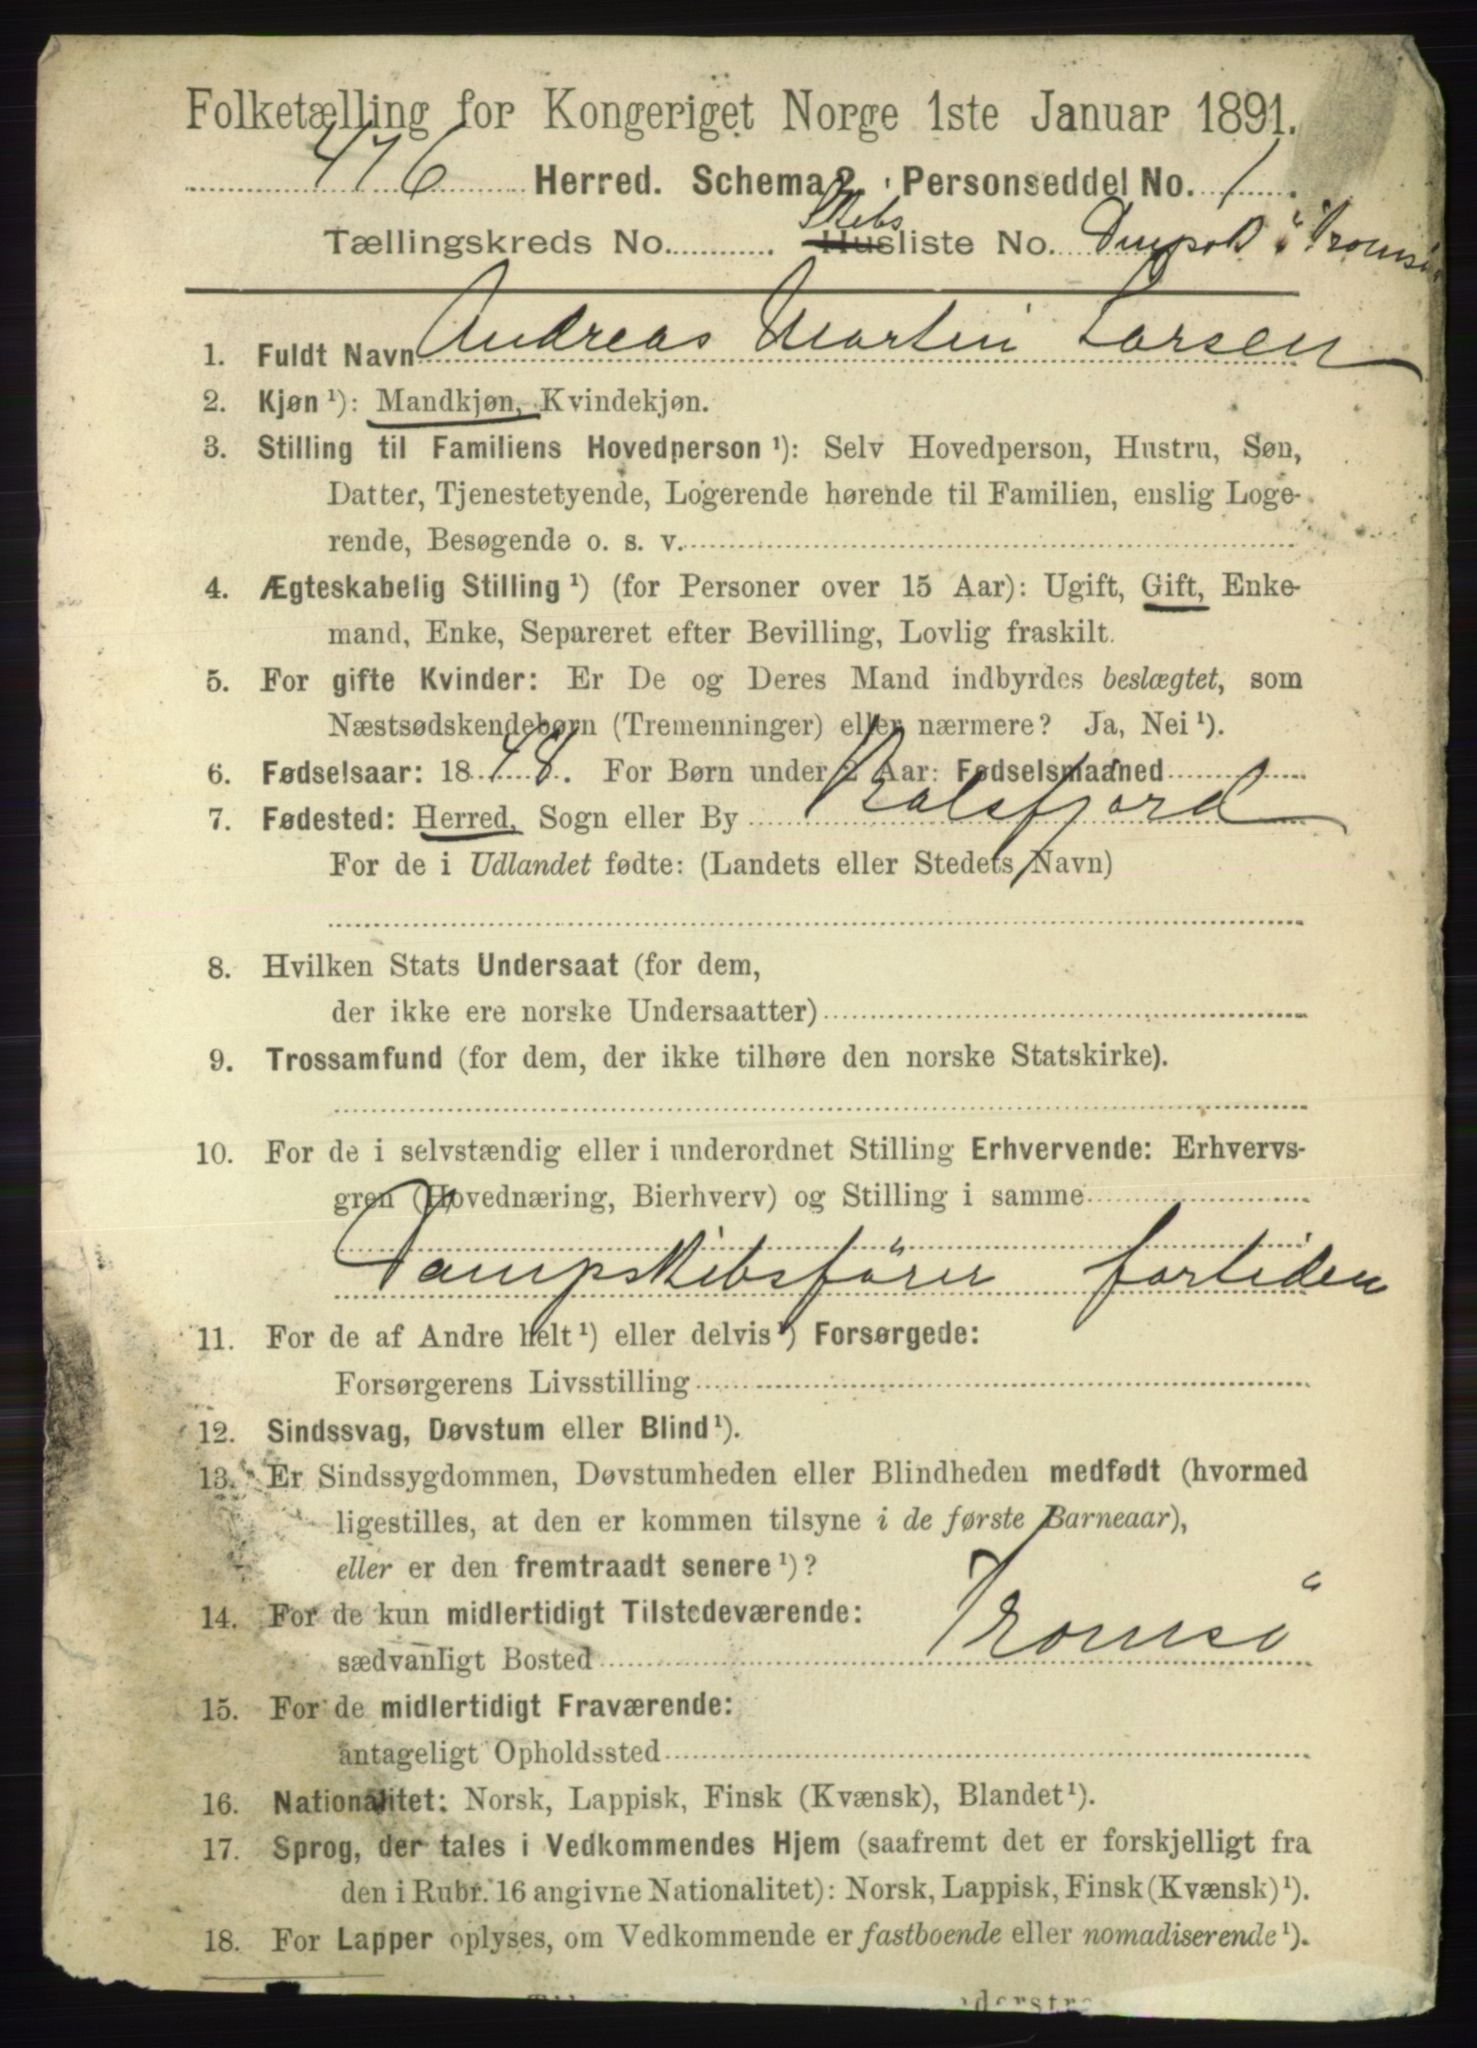 Folketælling for Kongeriget Norge 1ste Januar 1891.
476 Herred. Schema 2. Personseddel No. 1
Tællingskreds No. Skibs Husliste No. "Tromsö
1. Fuldt Navn Andreas Martin Larsen
2. Kjøn ¹): Mandkjøn, Kvindekjøn.
3. Stilling til Familiens Hovedperson ¹): Selv Hovedperson, Hustru, Søn,
Datter, Tjenestetyende, Logerende hørende til Familien, enslig Loge-
rende, Besøgende o. s. v.
4. Ægteskabelig Stilling ¹) (for Personer over 15 Aar): Ugift, Gift, Enke-
mand, Enke, Separeret efter Bevilling, Lovlig fraskilt.
5. For gifte Kvinder: Er De og Deres Mand indbyrdes beslægtet, som
Næstsødskendebørn (Tremenninger) eller nærmere? Ja, Nei ¹).
6. Fødselsaar: 1848. For Børn under 2 Aar: Fødselsmaaned
7. Fødested: Herred, Sogn eller By Balsfjord
For de i Udlandet fødte: (Landets eller Stedets Navn)
8. Hvilken Stats Undersaat (for dem,
der ikke ere norske Undersaatter)
9. Trossamfund (for dem, der ikke tilhøre den norske Statskirke).
10. For de i selvstændig eller i underordnet Stilling Erhvervende: Erhvervs-
gren (Hovednæring, Bierhverv) og Stilling i samme
Dampskibsförer fortiden
11. For de af Andre helt ¹) eller delvis ¹) Forsørgede:
Forsørgerens Livsstilling
12. Sindssvag, Døvstum eller Blind ¹).
13. Er Sindssygdommen, Døvstumheden eller Blindheden medfødt (hvormed
ligestilles, at den er kommen tilsyne i de første Barneaar),
eller er den fremtraadt senere ¹)?
14. For de kun midlertidigt Tilstedeværende:
sædvanligt Bosted Tromsö
15. For de midlertidigt Fraværende:
antageligt Opholdssted
16. Nationalitet: Norsk, Lappisk, Finsk (Kvænsk), Blandet ¹).
17. Sprog, der tales i Vedkommendes Hjem (saafremt det er forskjelligt fra
den i Rubr. 16 angivne Nationalitet): Norsk, Lappisk, Finsk (Kvænsk) ¹).
18. For Lapper oplyses, om Vedkommende er fastboende eller nomadiserende ¹).